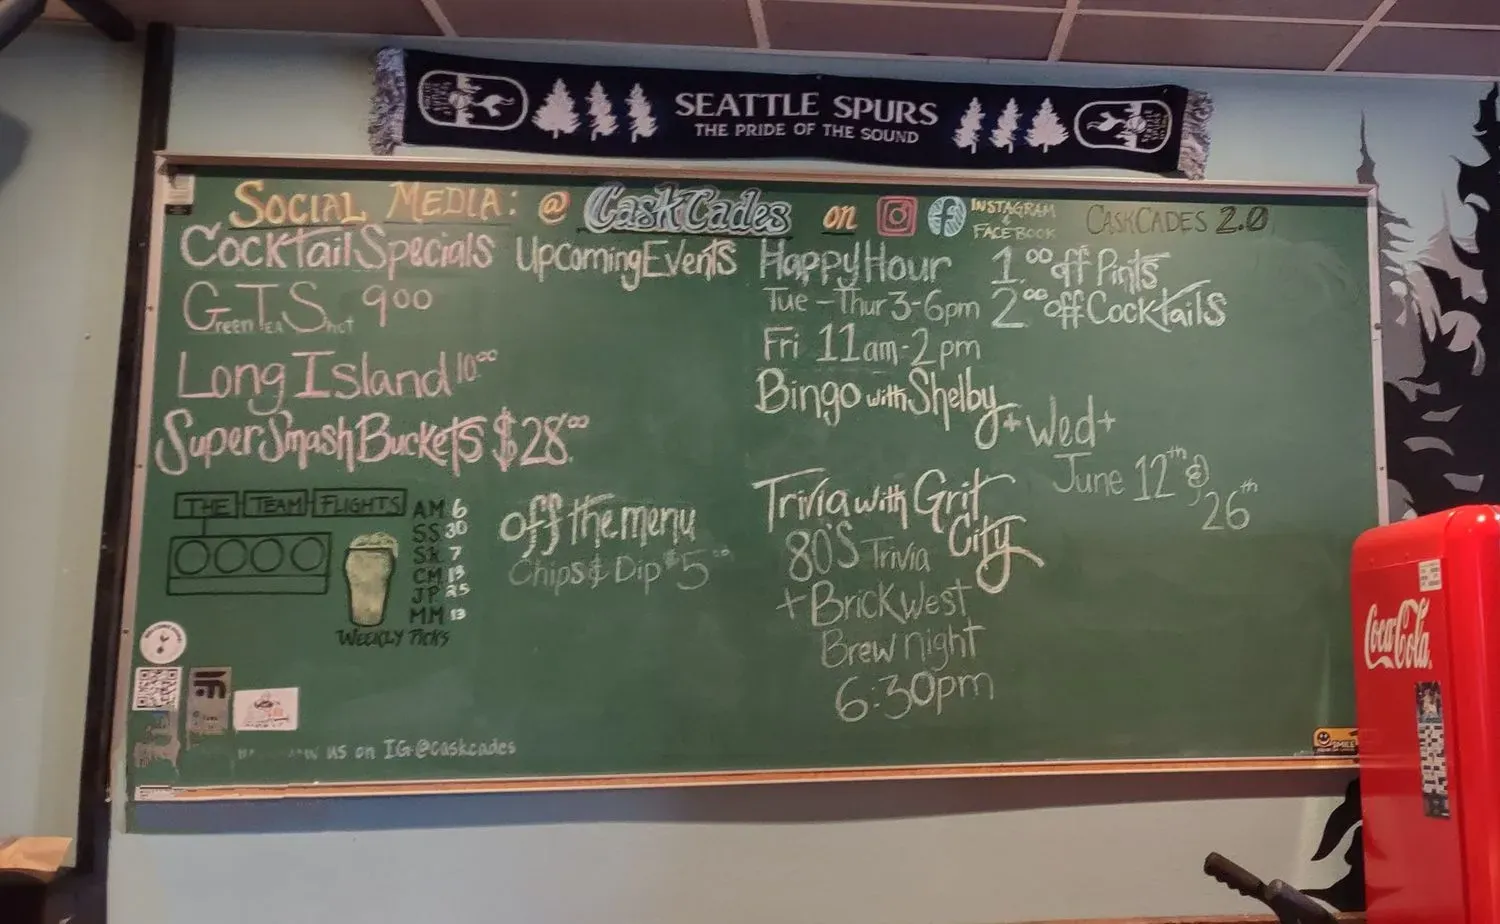 SEATTLE SPURS
THE PRIDE OF THE SOUND
SOCIAL MEDIA: @ CaskCades on
INSTAGRAM
FACEBOOK
CASKCADES 2.0
Cocktail Specials
Green Tea Shot 9.00
Long Island 10.00
Super Smash Buckets $28.00
THE TEAM FLIGHTS
AM 6
SS 30
SR 7
CM 13
JP 25
MM 13
WEEKLY PICKS
us on IG @caskcades
Upcoming Events
off the menu
Chips & Dip $5.00
Happy Hour
Tue - Thur 3-6pm
Fri 11am-2pm
1.00 off Pints
2.00 off Cocktails
Bingo with Shelby
+ Wed +
June 12th @
26th
Trivia with Grit
City
80'S Trivia
+ Brick West
Brew night
6:30pm
SMILE
Coca-Cola